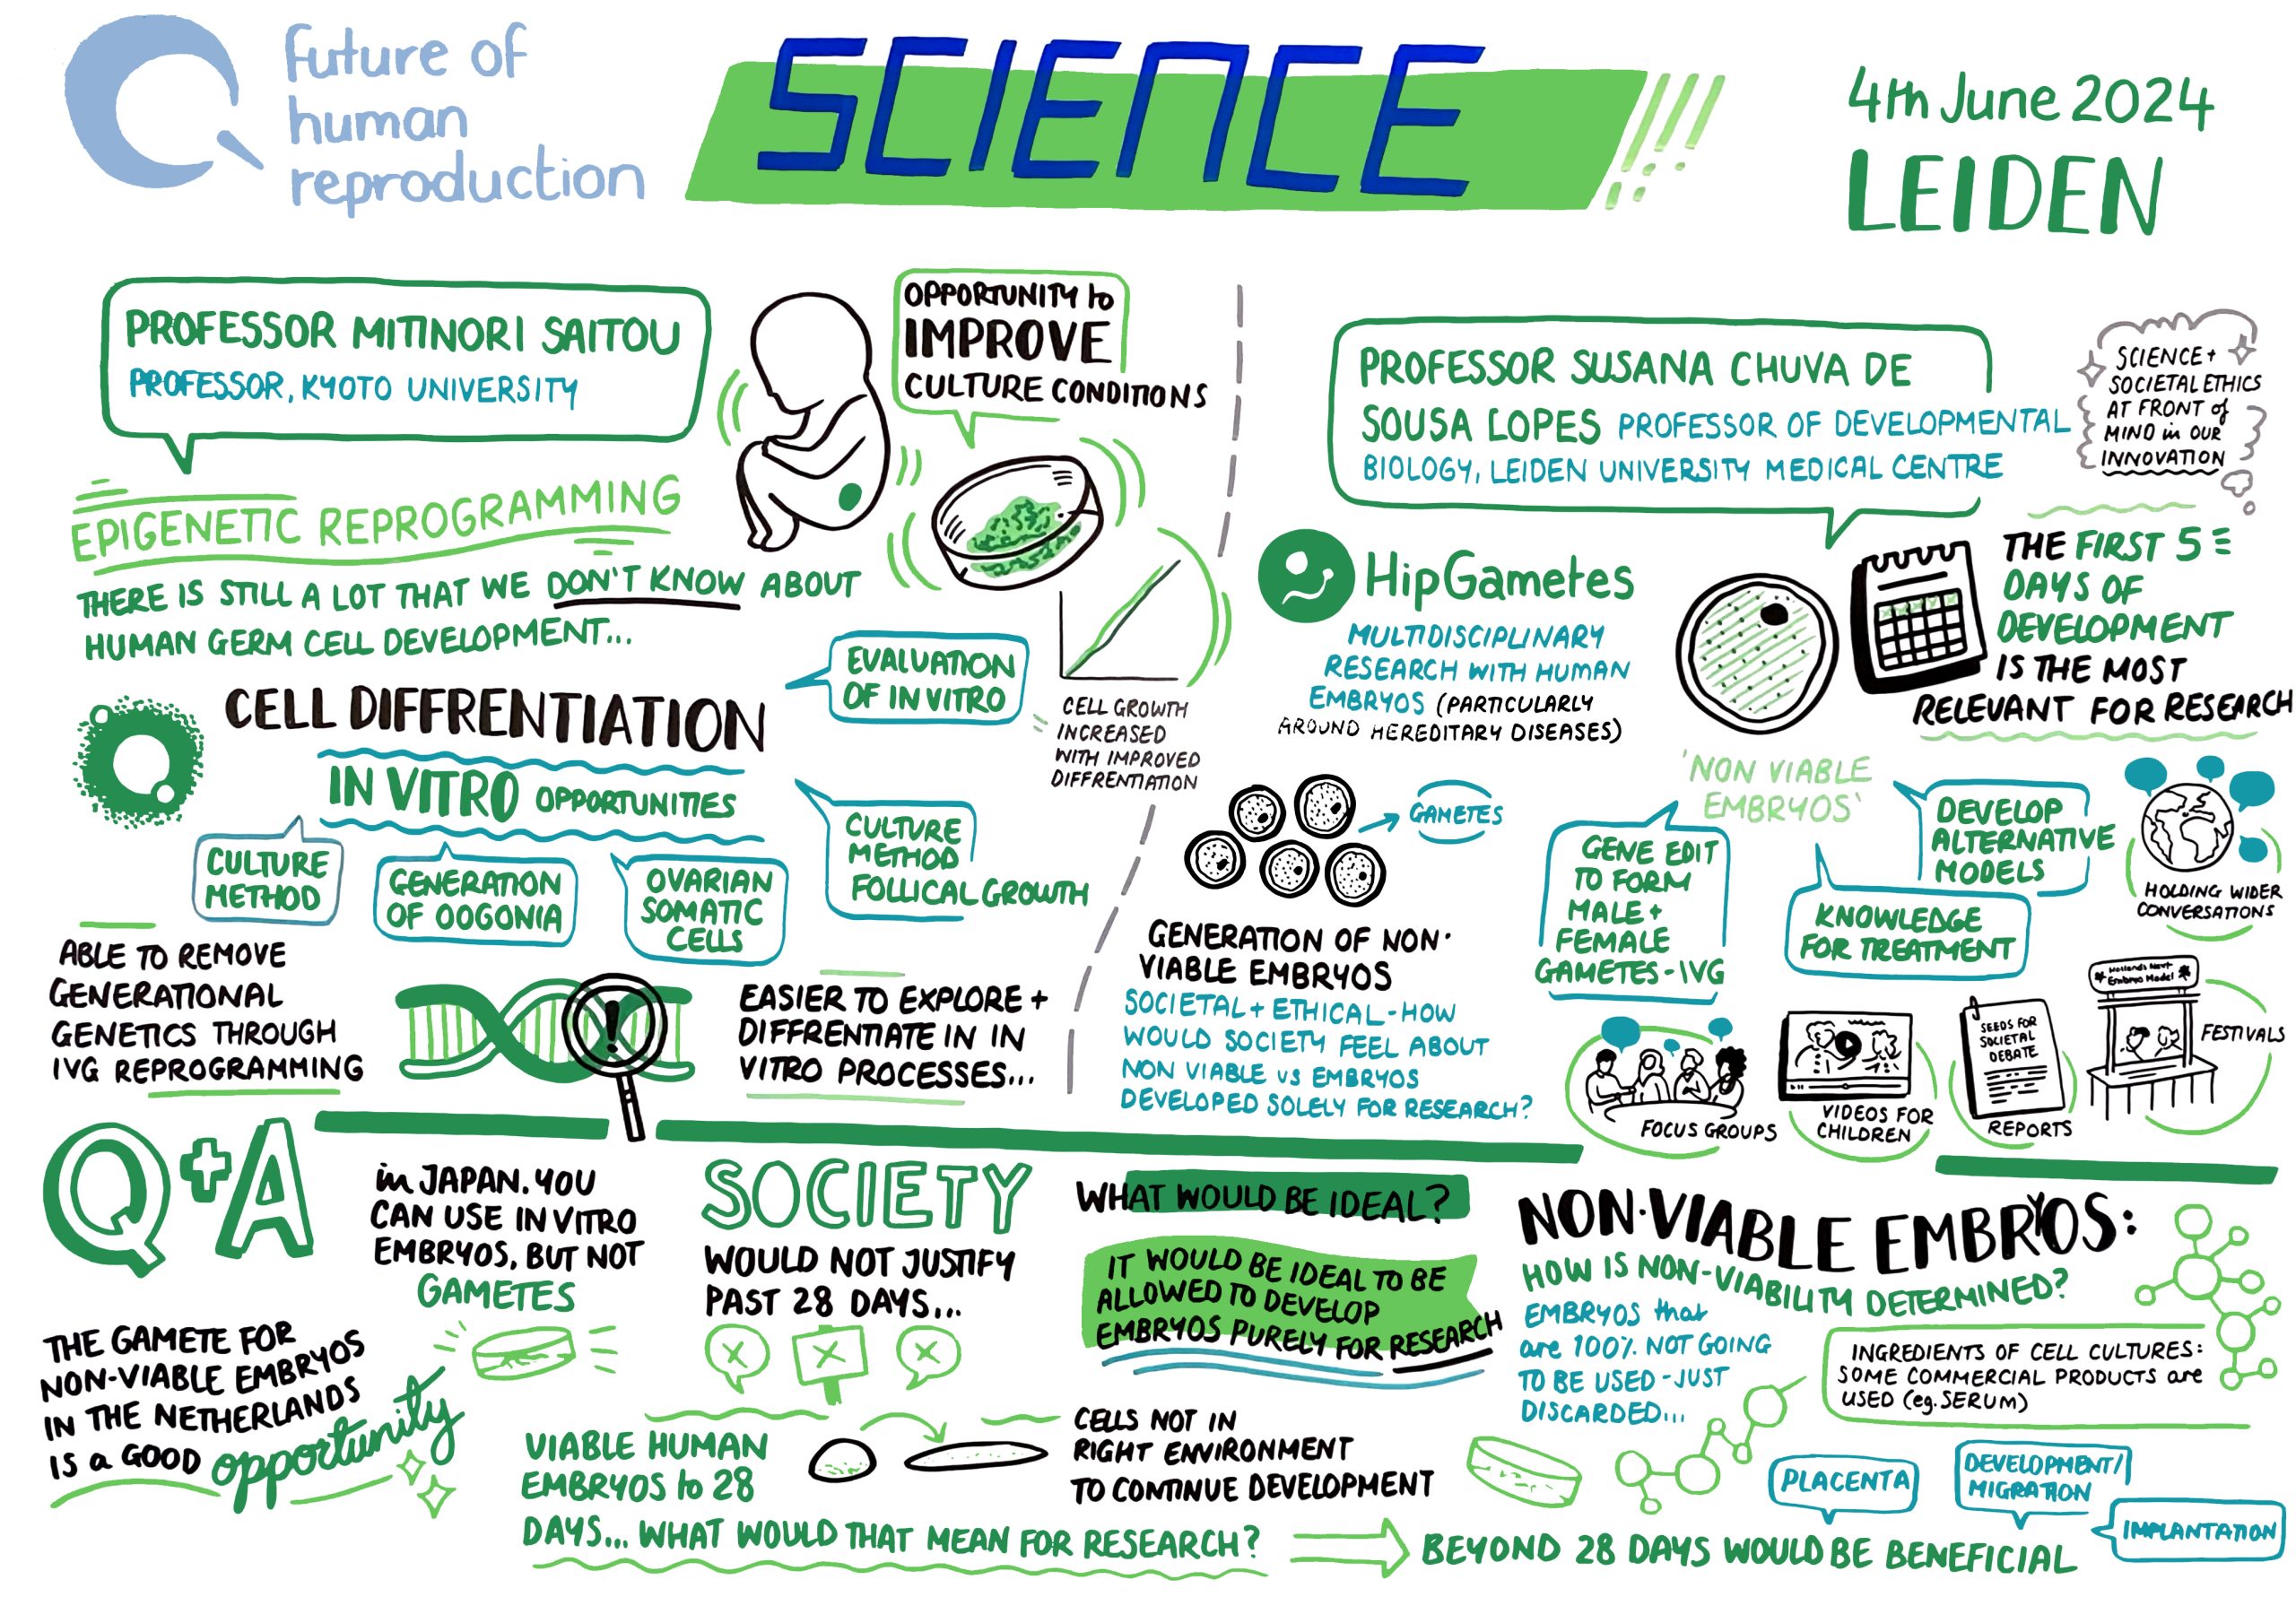 Future of
human
reproduction
SCIENCE
4th June 2024
LEIDEN
PROFESSOR MITINORI SAITOU
PROFESSOR, KYOTO UNIVERSITY
OPPORTUNITY to
IMPROVE
CULTURE CONDITIONS
EPIGENETIC REPROGRAMMING
THERE IS STILL A LOT THAT WE DON'T KNOW ABOUT
HUMAN GERM CELL DEVELOPMENT...
CELL DIFFRENTIATION
IN VITRO OPPORTUNITIES
EVALUATION
OF IN VITRO
CELL GROWTH
INCREASED
WITH IMPROVED
DIFFRENTIATION
CULTURE
METHOD
GENERATION
OF OOGONIA
OVARIAN
SOMATIC
CELLS
CULTURE
METHOD
FOLLICAL GROWTH
ABLE TO REMOVE
GENERATIONAL
GENETICS THROUGH
IVG REPROGRAMMING
!
EASIER TO EXPLORE +
DIFFRENTIATE IN IN
VITRO PROCESSES...
PROFESSOR SUSANA CHUVA DE
SOUSA LOPES PROFESSOR OF DEVELOPMENTAL
BIOLOGY, LEIDEN UNIVERSITY MEDICAL CENTRE
SCIENCE +
SOCIETAL ETHICS
AT FRONT of
MIND in OUR
INNOVATION
HipGametes
MULTIDISCIPLINARY
RESEARCH WITH HUMAN
EMBRYOS (PARTICULARLY
AROUND HEREDITARY DISEASES)
THE FIRST 5
DAYS OF
DEVELOPMENT
IS THE MOST
RELEVANT FOR RESEARCH
GAMETES
GENERATION OF NON-
VIABLE EMBRYOS
SOCIETAL + ETHICAL - HOW
WOULD SOCIETY FEEL ABOUT
NON VIABLE VS EMBRYOS
DEVELOPED SOLELY FOR RESEARCH?
'NON VIABLE
EMBRYOS'
GENE EDIT
TO FORM
MALE +
FEMALE
GAMETES - IVG
DEVELOP
ALTERNATIVE
MODELS
KNOWLEDGE
FOR TREATMENT
HOLDING WIDER
CONVERSATIONS
FOCUS GROUPS
VIDEOS FOR
CHILDREN
SEEDS FOR
SOCIETAL
DEBATE
REPORTS
Hollands Next
Embryo Model
FESTIVALS
Q+A
in JAPAN. YOU
CAN USE IN VITRO
EMBRYOS, BUT NOT
GAMETES
THE GAMETE FOR
NON-VIABLE EMBRYOS
IN THE NETHERLANDS
IS a GOOD opportunity
SOCIETY
WOULD NOT JUSTIFY
PAST 28 DAYS...
WHAT WOULD BE IDEAL?
IT WOULD BE IDEAL TO BE
ALLOWED TO DEVELOP
EMBRYOS PURELY FOR RESEARCH
VIABLE HUMAN
EMBRYOS to 28
DAYS... WHAT WOULD THAT MEAN FOR RESEARCH?
CELLS NOT IN
RIGHT ENVIRONMENT
TO CONTINUE DEVELOPMENT
NON-VIABLE EMBRYOS:
HOW IS NON-VIABILITY DETERMINED?
EMBRYOS that
are 100% NOT GOING
TO BE USED - JUST
DISCARDED...
INGREDIENTS OF CELL CULTURES:
SOME COMMERCIAL PRODUCTS are
USED (eg. SERUM)
PLACENTA
DEVELOPMENT/
MIGRATION
IMPLANTATION
BEYOND 28 DAYS WOULD BE BENEFICIAL